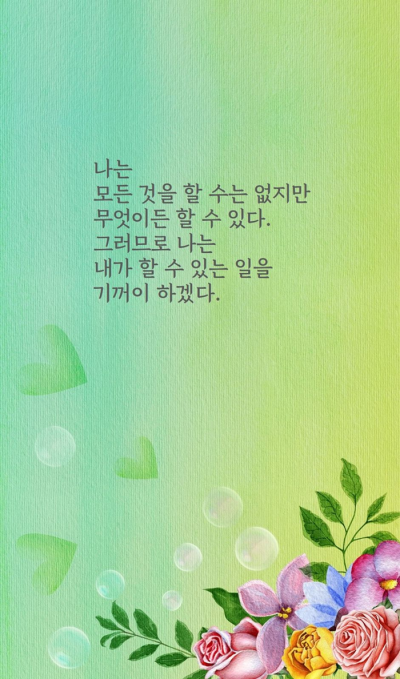 나는
모든 것을 할 수는 없지만
무엇이든 할 수 있다.
그러므로 나는
내가 할 수 있는 일을
기꺼이 하겠다.